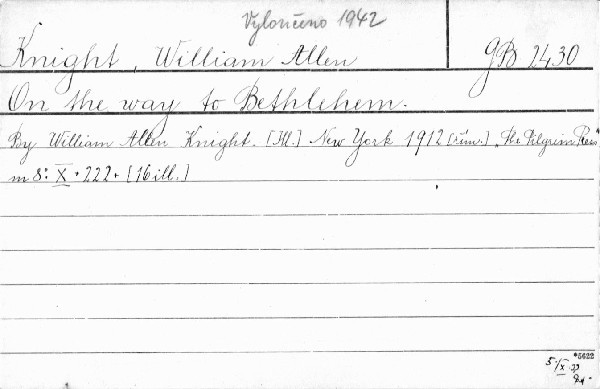 Vyloučeno 1942
Knight, William Allen
GB 2430
On the way to Bethlehem.
By William Allen Knight. [Ill.] New York 1912 [řím.] The Pilgrim Press
m 8: X + 222 + [16 ill.]
*5622
5/X